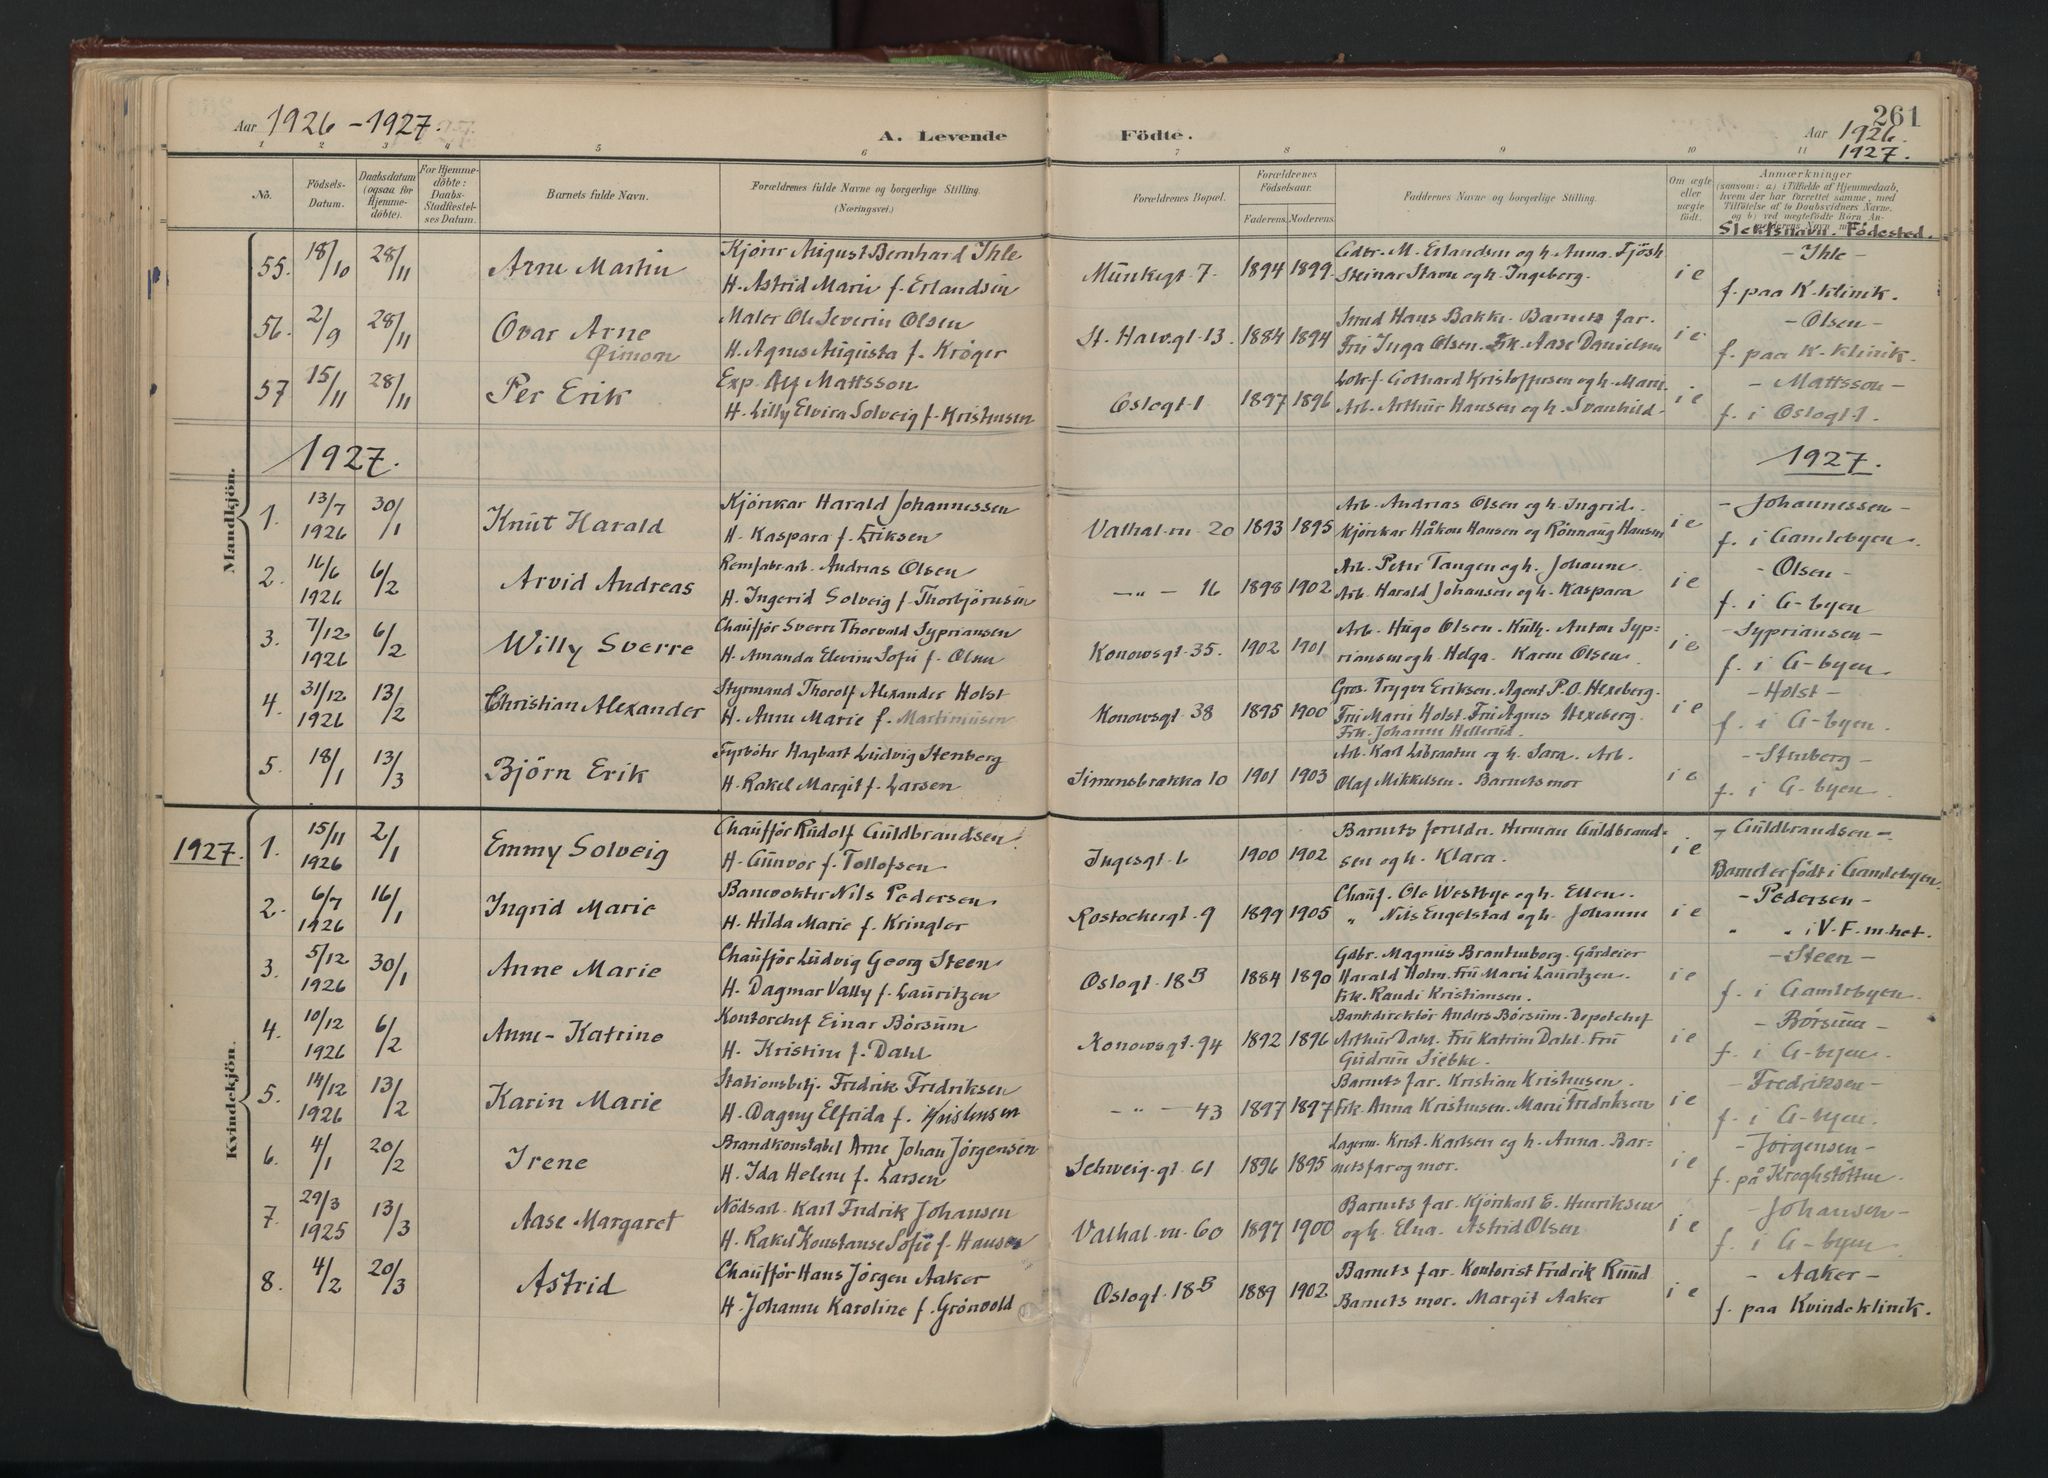 261
Aar 1926 - 1927.
A. Levende Födte.
Aar 1926.
1927.
1 2 3 4 5 6 7 8 9 10 11
No.
Födsels-Datum.
Daabsdatum (ogsaa for Hjemme-döbte).
For Hjemme-döbte: Daabs-Stadfæstel-ses Datum.
Barnets fulde Navn.
Forældrenes fulde Navne og borgerlige Stilling. (Næringsvei.)
Forældrenes Bopæl.
Forældrenes Födselsaar.
Faderens. Moderens.
Faddernes Navne og borgerlige Stilling.
Om ægte eller uægte födt.
Anmærkninger
(saasom: a.) i Tilfælde af Hjemmedaab,
hvem der har forrettet samme, med
Tilföielse af to Daabsvidners Navne,
og b) ved uægtefödte Börn An-
Slektsnavn. Födested.
Mandkjön.
55. 18/10 28/11 Arne Martin Kjörer August Bernhard Ihle Munkegt. 7. 1894 1899 Gdbr. M. Erlandsen og h. Anna. i e - Ihle -
H. Astrid Marie f. Erlandsen Steinar Stave og h. Ingeberg. f. paa K. klinik.
56. 2/9 28/11 Ovar Arne Maler Ole Severin Olsen St. Halvgt. 13. 1884 1894 Hans Bakke. Barnets far. i e - Olsen -
Simon H. Agnes Augusta f. Kröger Fru Inga Olsen. Frk. Aase Danielsen f. paa K. klinik.
57 15/11 28/11 Per Erik Exp. Alf Mattsson Oslogt. 1 1897 1896 Lokf. Gothard Kristoffersen og h. Marie. i e - Mattsson -
H. Lilly Elvira Solveig f. Kristensen Arb. Arthur Hansen og h. Svanhild. f. i Oslogt. 1.
1927. 1927.
1. 13/7 1926 30/1 Knut Harald Kjörekar Harald Johannessen Valhal.vn. 20 1893 1895 Arb. Andreas Olsen og h. Ingrid. i e - Johannessen -
H. Kaspara f. Eriksen Kjörekar Håkon Hansen og Rönnaug Hansen f. i Gamlebyen.
2. 16/6 1926 6/2 Arvid Andreas Remfabr.arb. Andreas Olsen -"- 16 1898 1902 Arb. Peter Tangen og h. Johanne. i e - Olsen -
H. Ingerid Solveig f. Thorbjörnsen Arb. Harald Johansen og h. Kaspara f. i G-byen
3. 7/12 1926 6/2 Willy Sverre Chaufför Sverre Thorvald Sypriansen Konowsgt. 35. 1902 1901 Arb. Hugo Olsen. Kusk. Anton Syp= i e - Sypriansen -
H. Amanda Elevine Sofie f. Olsen riansen og h. Helga. Karen Olsen. f. i G-byen
4. 31/12 1926 13/2 Christian Alexander Styrmand Thorolf Alexander Holst Konowsgt. 38 1895 1900 Gros. Trygve Eriksen. Agent P.O. Hexeberg. i e - Holst -
H. Anne Marie f. Martiniusen Fru Marie Holst. Fru Agnes Hexeberg. f. i G-byen.
Frk. Johanne Hellerud.
5. 18/1 13/3 Björn Erik Fyrböter Hagbart Ludvig Stenberg Simensbrakka 10 1901 1903 Arb. Karl Libraaten og h. Sara. Arb. i e - Stenberg -
H. Rakel Margit f. Larsen Olaf Mikkelsen. Barnets mor f. i G-byen.
Kvindekjön.
1927. 1. 15/11 1926 2/1 Emmy Solveig Chaufför Rudolf Guldbrandsen Ingesgt. 6 1900 1902 Barnets foreldr. Herman Guldbrand- i e - Guldbrandsen -
H. Gunvor f. Tollofsen sen og h. Klara. Barnet er födt i Gamlebyen.
2. 6/7 1926 16/1 Ingrid Marie Banevokter Nils Pedersen Rostockergt. 9 1899 1905 Chauf. Ole Westbye og h. Ellen. i e - Pedersen -
H. Hilda Marie f. Kringler " Nils Engelstad og h. Johanne " " i V. F. m. het.
3. 5/12 1926 30/1 Anne Marie Chaufför Ludvig Georg Steen Oslogt. 18B 1884 1890 Gdbr. Magnus Brantenborg. Gårdeier i e - Steen -
H. Dagmar Vally f. Lauritzen Harald Holm. Fru Marie Lauritzen. f. i Gamlebyen.
Frk. Randi Kristiansen.
4. 10/12 1926 6/2 Anne-Katrine Kontorchef Einar Börsum Konowsgt. 94 1892 1896 Bankdirektör Anders Börsum. Depotchef i e - Börsum -
H. Kristine f. Dahl Arthur Dahl. Fru Katrine Dahl. Fru f. i G-byen.
Gudrun Siebke.
5. 14/12 1926 13/2 Karin Marie Stationsbetj. Fredrik Fredriksen -"- 43 1897 1897 Barnets far. Kristian Kristensen. i e - Fredriksen -
H. Dagny Elfrida f. Kristensen Frk. Anna Kristensen. Marie Fredriksen f. i G-byen.
6. 4/1 20/2 Irene Brandkonstabel Arne Johan Jörgensen Schweig.gt. 61 1896 1895 Lagerm. Krist. Karlsen og h. Anna. Bar= i e - Jörgensen -
H. Ida Helene f. Larsen nets far og mor. f. på Kroghstötten.
7. 29/3 1925 13/3 Aase Margaret Nödsarb. Karl Fredrik Johansen Valhal.vn. 60 1897 1900 Barnets far. Kjörekarl E. Henriksen i e - Johansen -
H. Rakel Konstanse Sofie f. Hansen og h. Elna. Astrid Olsen f. i G-byen
8. 4/2 20/3 Astrid Chaufför Hans Jörgen Aaker Oslogt. 18B 1889 1902 Barnets far. Kontorist Fredrik Ruud i e - Aaker -
H. Johanne Karoline f. Grönvold Barnets mor. Margit Aaker f. paa Kvindeklinik.